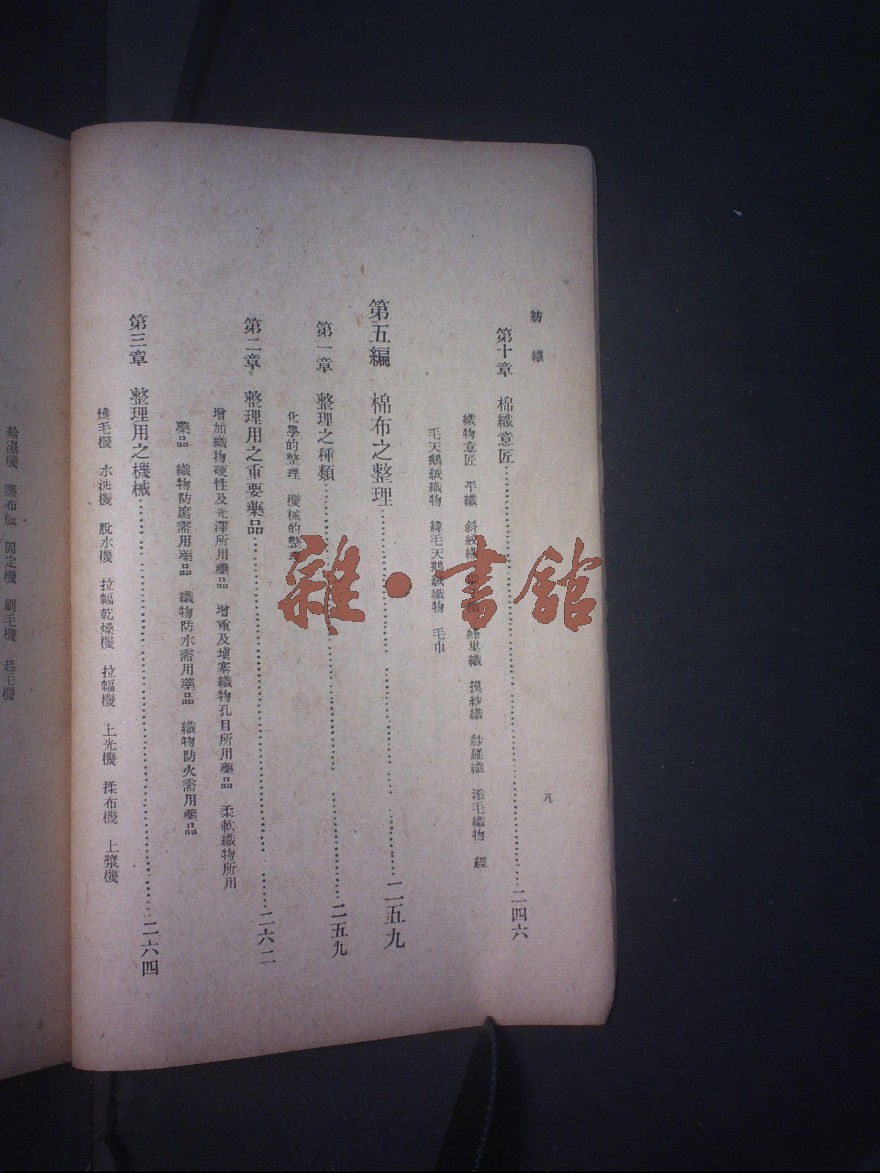 紡織
八
第十章 棉織意匠……二四六
織物意匠 平織 斜紋織 蜂巢織 摸紗織 紗羅織 添毛織物 經
毛天鵝絨織物 緯毛天鵝絨織物 毛巾
第五編 棉布之整理……二五九
第一章 整理之種類……二五九
化學的整理 機械的整理
第二章 整理用之重要藥品……二六二
增加織物硬性及光澤所用藥品 增重及填塞織物孔目所用藥品 柔軟織物所用
藥品 織物防腐需用藥品 織物防水需用藥品 織物防火需用藥品
第三章 整理用之機械……二六四
燒毛機 水洗機 脫水機 拉幅乾燥機 拉幅機 上光機 揉布機 上漿機
給濕機 蒸布機 固定機 刷毛機 起毛機
雜·書館